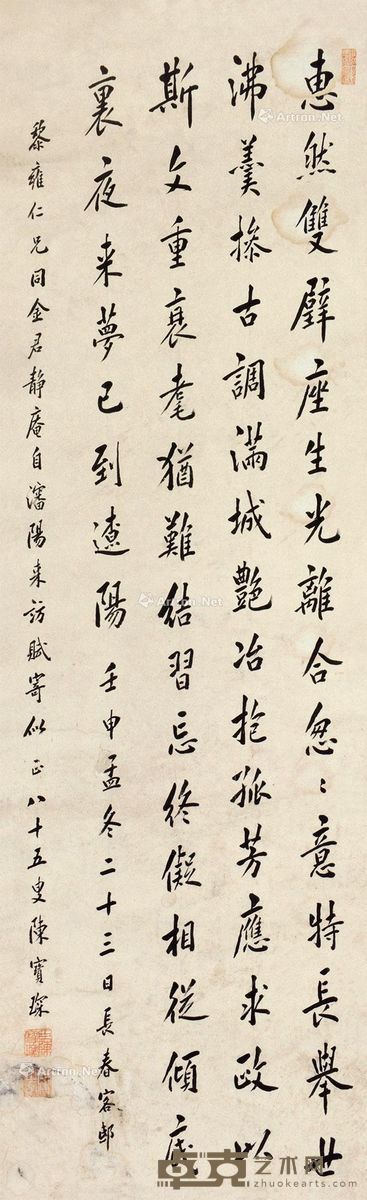 惠然雙璧座生光離合忽〻意特長舉世
沸羹搽古調滿城艷冶抱孤芳應求政以
斯文重衰耄猶難結習忘終儗相從傾底
裏夜來夢已到遼陽 壬申孟冬二十三日長春客邸
黎雍仁兄同金君靜庵自瀋陽來訪賦寄似 正 八十五叟陳寶琛
Artron.Net
卓克艺术网
www.zhuokearts.com